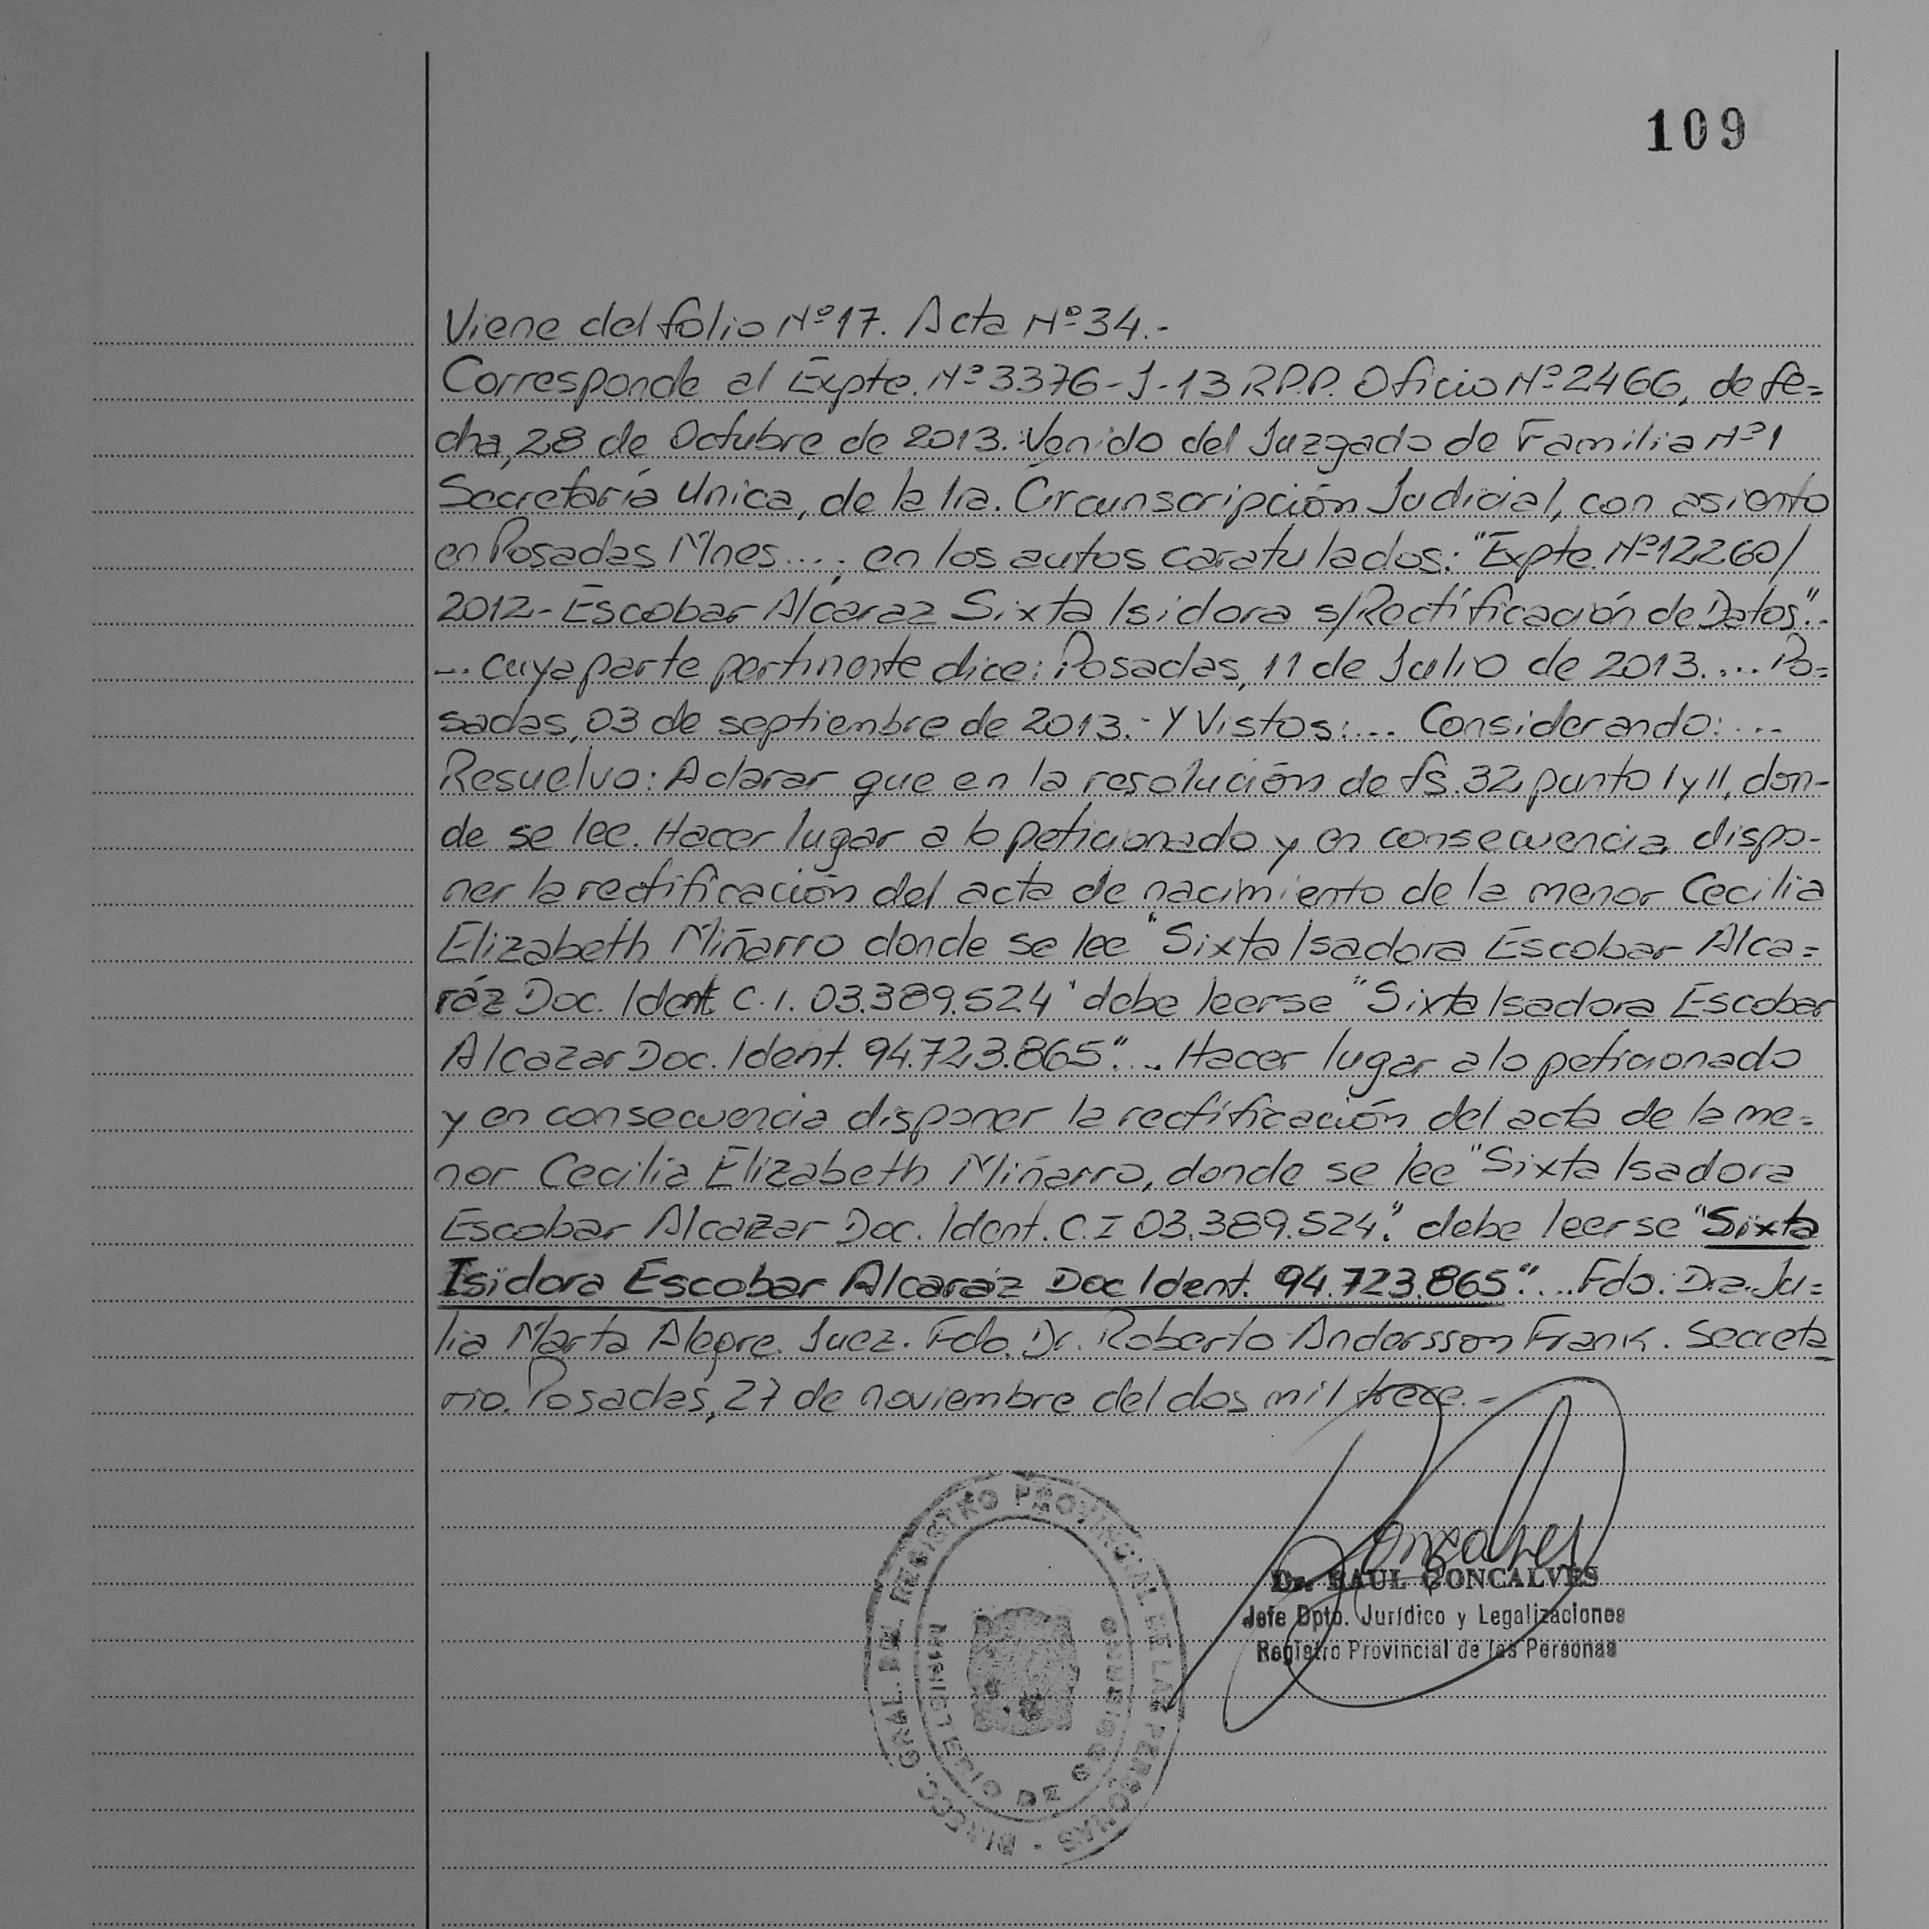 109
Viene del folio Nº 17. Acta Nº 34.-
Corresponde al Expte. Nº 3376-J-13 R.P.P. Oficio Nº 2466, de fe=
cha, 28 de Octubre de 2013. Venido del Juzgado de Familia Nº 1
Secretaría Unica, de la 1ra. Circunscripción Judicial, con asiento
en Posadas Mnes...; en los autos caratulados: "Expte. Nº 12260/
2012- Escobar Alcaraz Sixta Isidora s/Rectificación de Datos".-
... cuya parte pertinente dice: Posadas, 11 de Julio de 2013.... Po=
sadas, 03 de septiembre de 2013.- Y Vistos:... Considerando:...
Resuelvo: Aclarar que en la resolución de fs. 32, punto I y II, don-
de se lee. Hacer lugar a lo peticionado y en consecuencia dispo-
ner la rectificación del acta de nacimiento de la menor Cecilia
Elizabeth Miñarro donde se lee "Sixta Isadora Escobar Alca=
ráz Doc. Ident. C.I. 03.389.524" debe leerse "Sixta Isadora Escobar
Alcazar Doc. Ident. 94.723.865"... Hacer lugar a lo peticionado
y en consecuencia disponer la rectificación del acta de la me=
nor Cecilia Elizabeth Miñarro, donde se lee "Sixta Isadora
Escobar Alcazar Doc. Ident. C.I 03.389.524." debe leerse "Sixta
Isidora Escobar Alcaráz Doc Ident. 94.723.865"... Fdo. Dra. Ju=
lia Marta Alegre. Juez. Fdo. Dr. Roberto Andersson Frank. Secreta
rio. Posadas, 27 de noviembre del dos mil trece.-
Goncalves
Dr. RAUL GONCALVES
Jefe Dpto. Jurídico y Legalizaciones
Registro Provincial de las Personas
DIRECC. GRAL. DEL REGISTRO PROVINCIAL DE LAS PERSONAS
MINISTERIO DE GOBIERNO